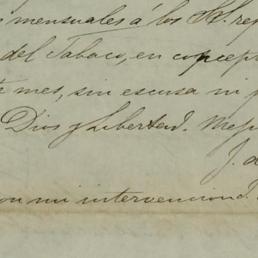 mensuales á los
del Tabaco, en concep
mes, sin escusa ni p
Dios y Libertad.
J. d
on mi intervencion.